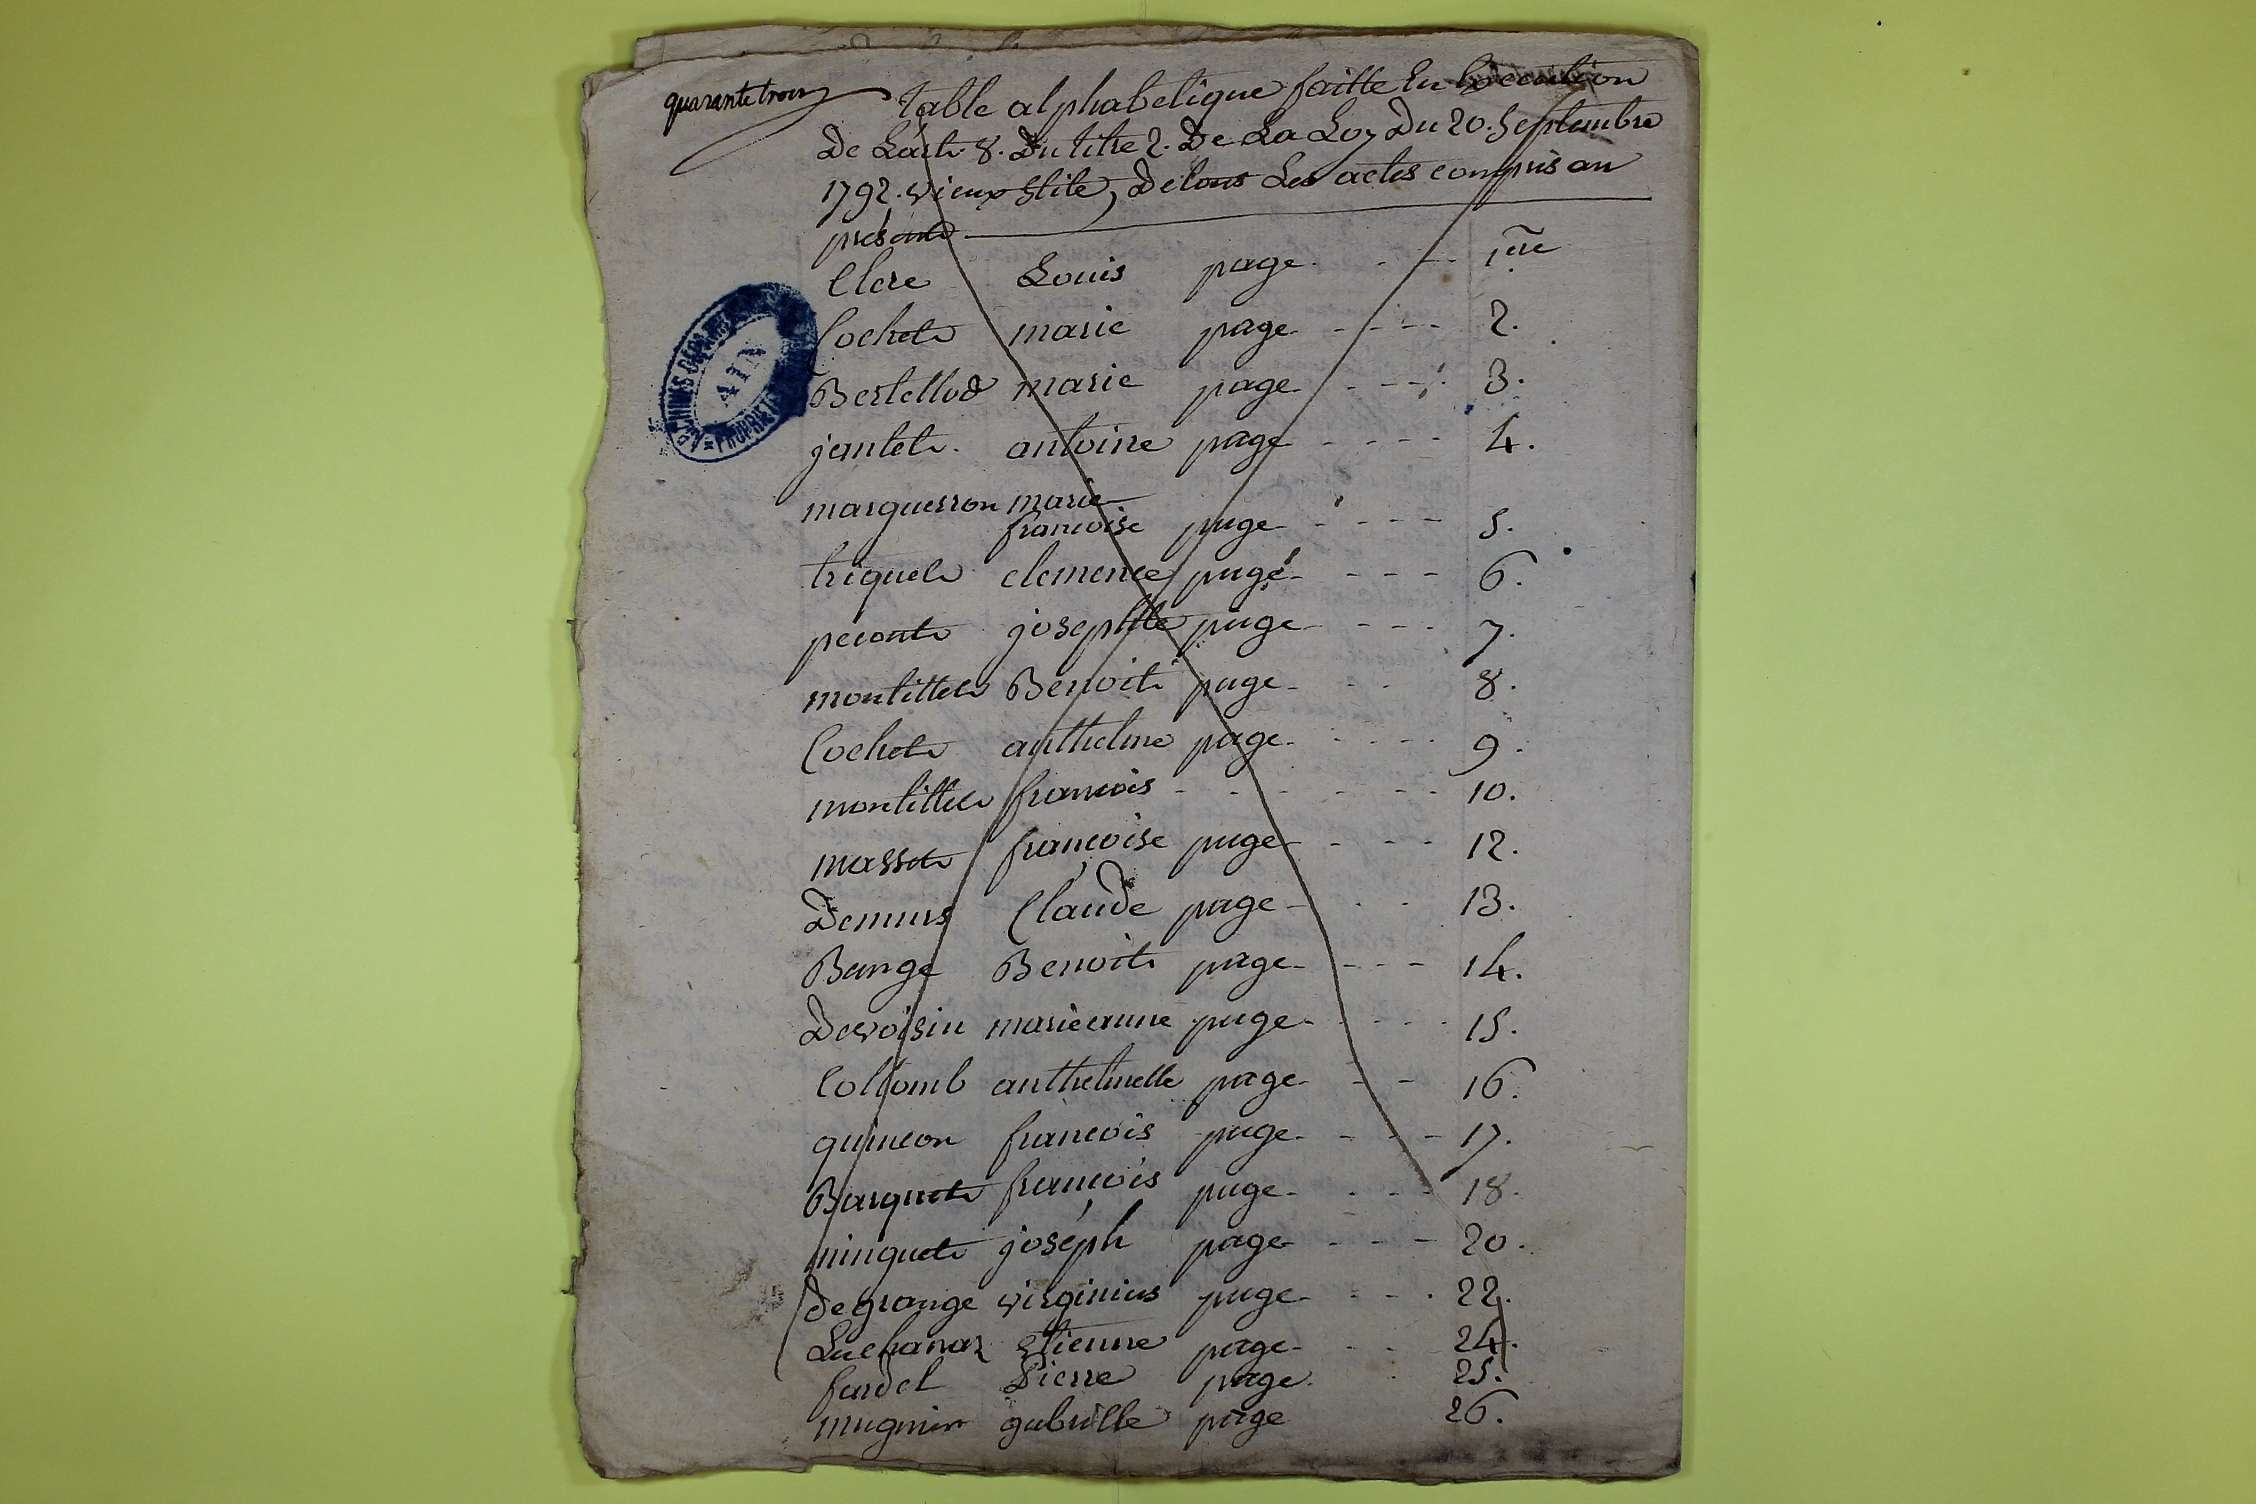 quarante trois
table alphabetique faitte En Execution
De L'art. 8. Du titre 2. De La Loy Du 20. Septembre
1792. vieux stile, De tous Les actes compris au
présent
Clere Louis page 1ere
Cochet marie page 2.
Bertellod marie page 3.
jantet antoine page 4.
marguerron marie
francoise page 5.
triquet clemence page 6.
pecont josephte page 7.
montillet Benoit page 8.
Cochet anthelme page 9.
montillet francois 10.
massot francoise page 12.
Demurs Claude page 13.
Bange Benoit page 14.
Devoisin marieanne page 15.
Collomb anthelmette page 16.
quincon francois page 17.
Barquet francois page 18.
ninquet joseph page 20.
degrange virginius page 22.
Luchanaz Etienne page 24.
fardel Pierre page 25.
mugnier gabrielle page 26.
ARCHIVES DEPART
AIN
PROPRIETE